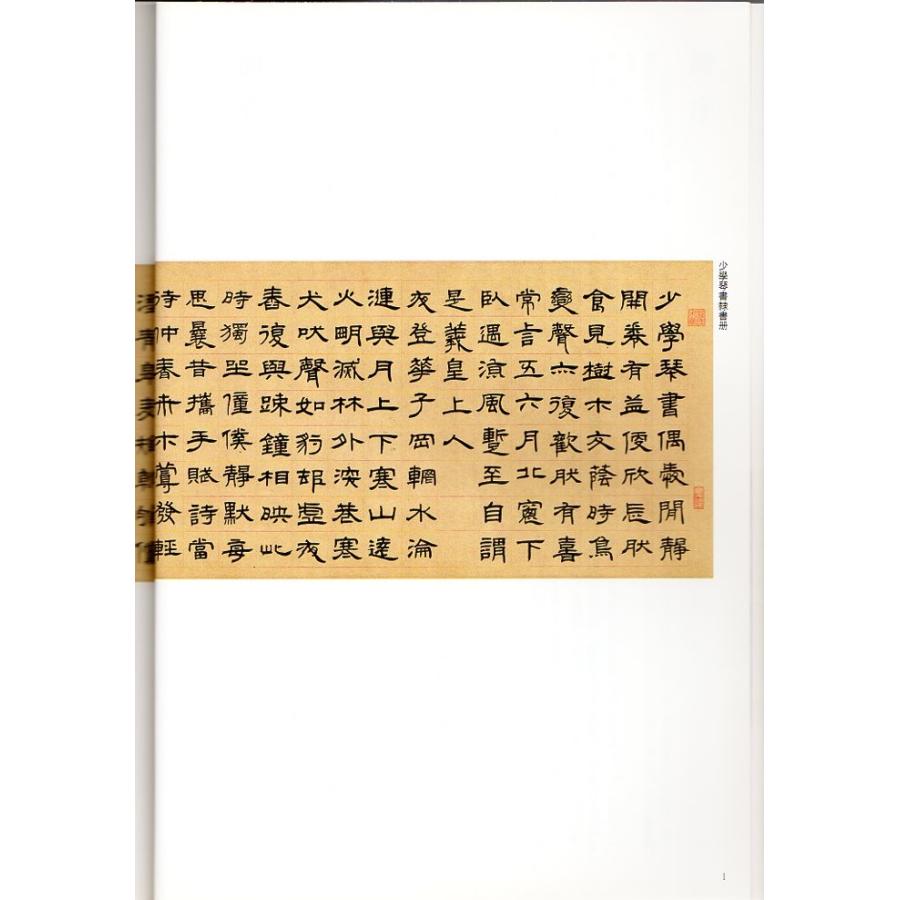 少學琴書隸書册
少學琴書偶愛閒靜
開卷有益便欣忘然
食見樹木交蔭時鳥
變聲亦復歡然有喜
常言五六月北窗下
臥遇涼風暫至自謂
是羲皇上人
夜登華子岡輞水淪
漣與月上下寒山遠
火明滅林外深巷寒
犬吠聲如豹邨虛夜
舂復與疎鐘相映此
時獨坐僮僕靜默每
思曩昔攜手賦詩當
待仲春卉木蔓發輕
1